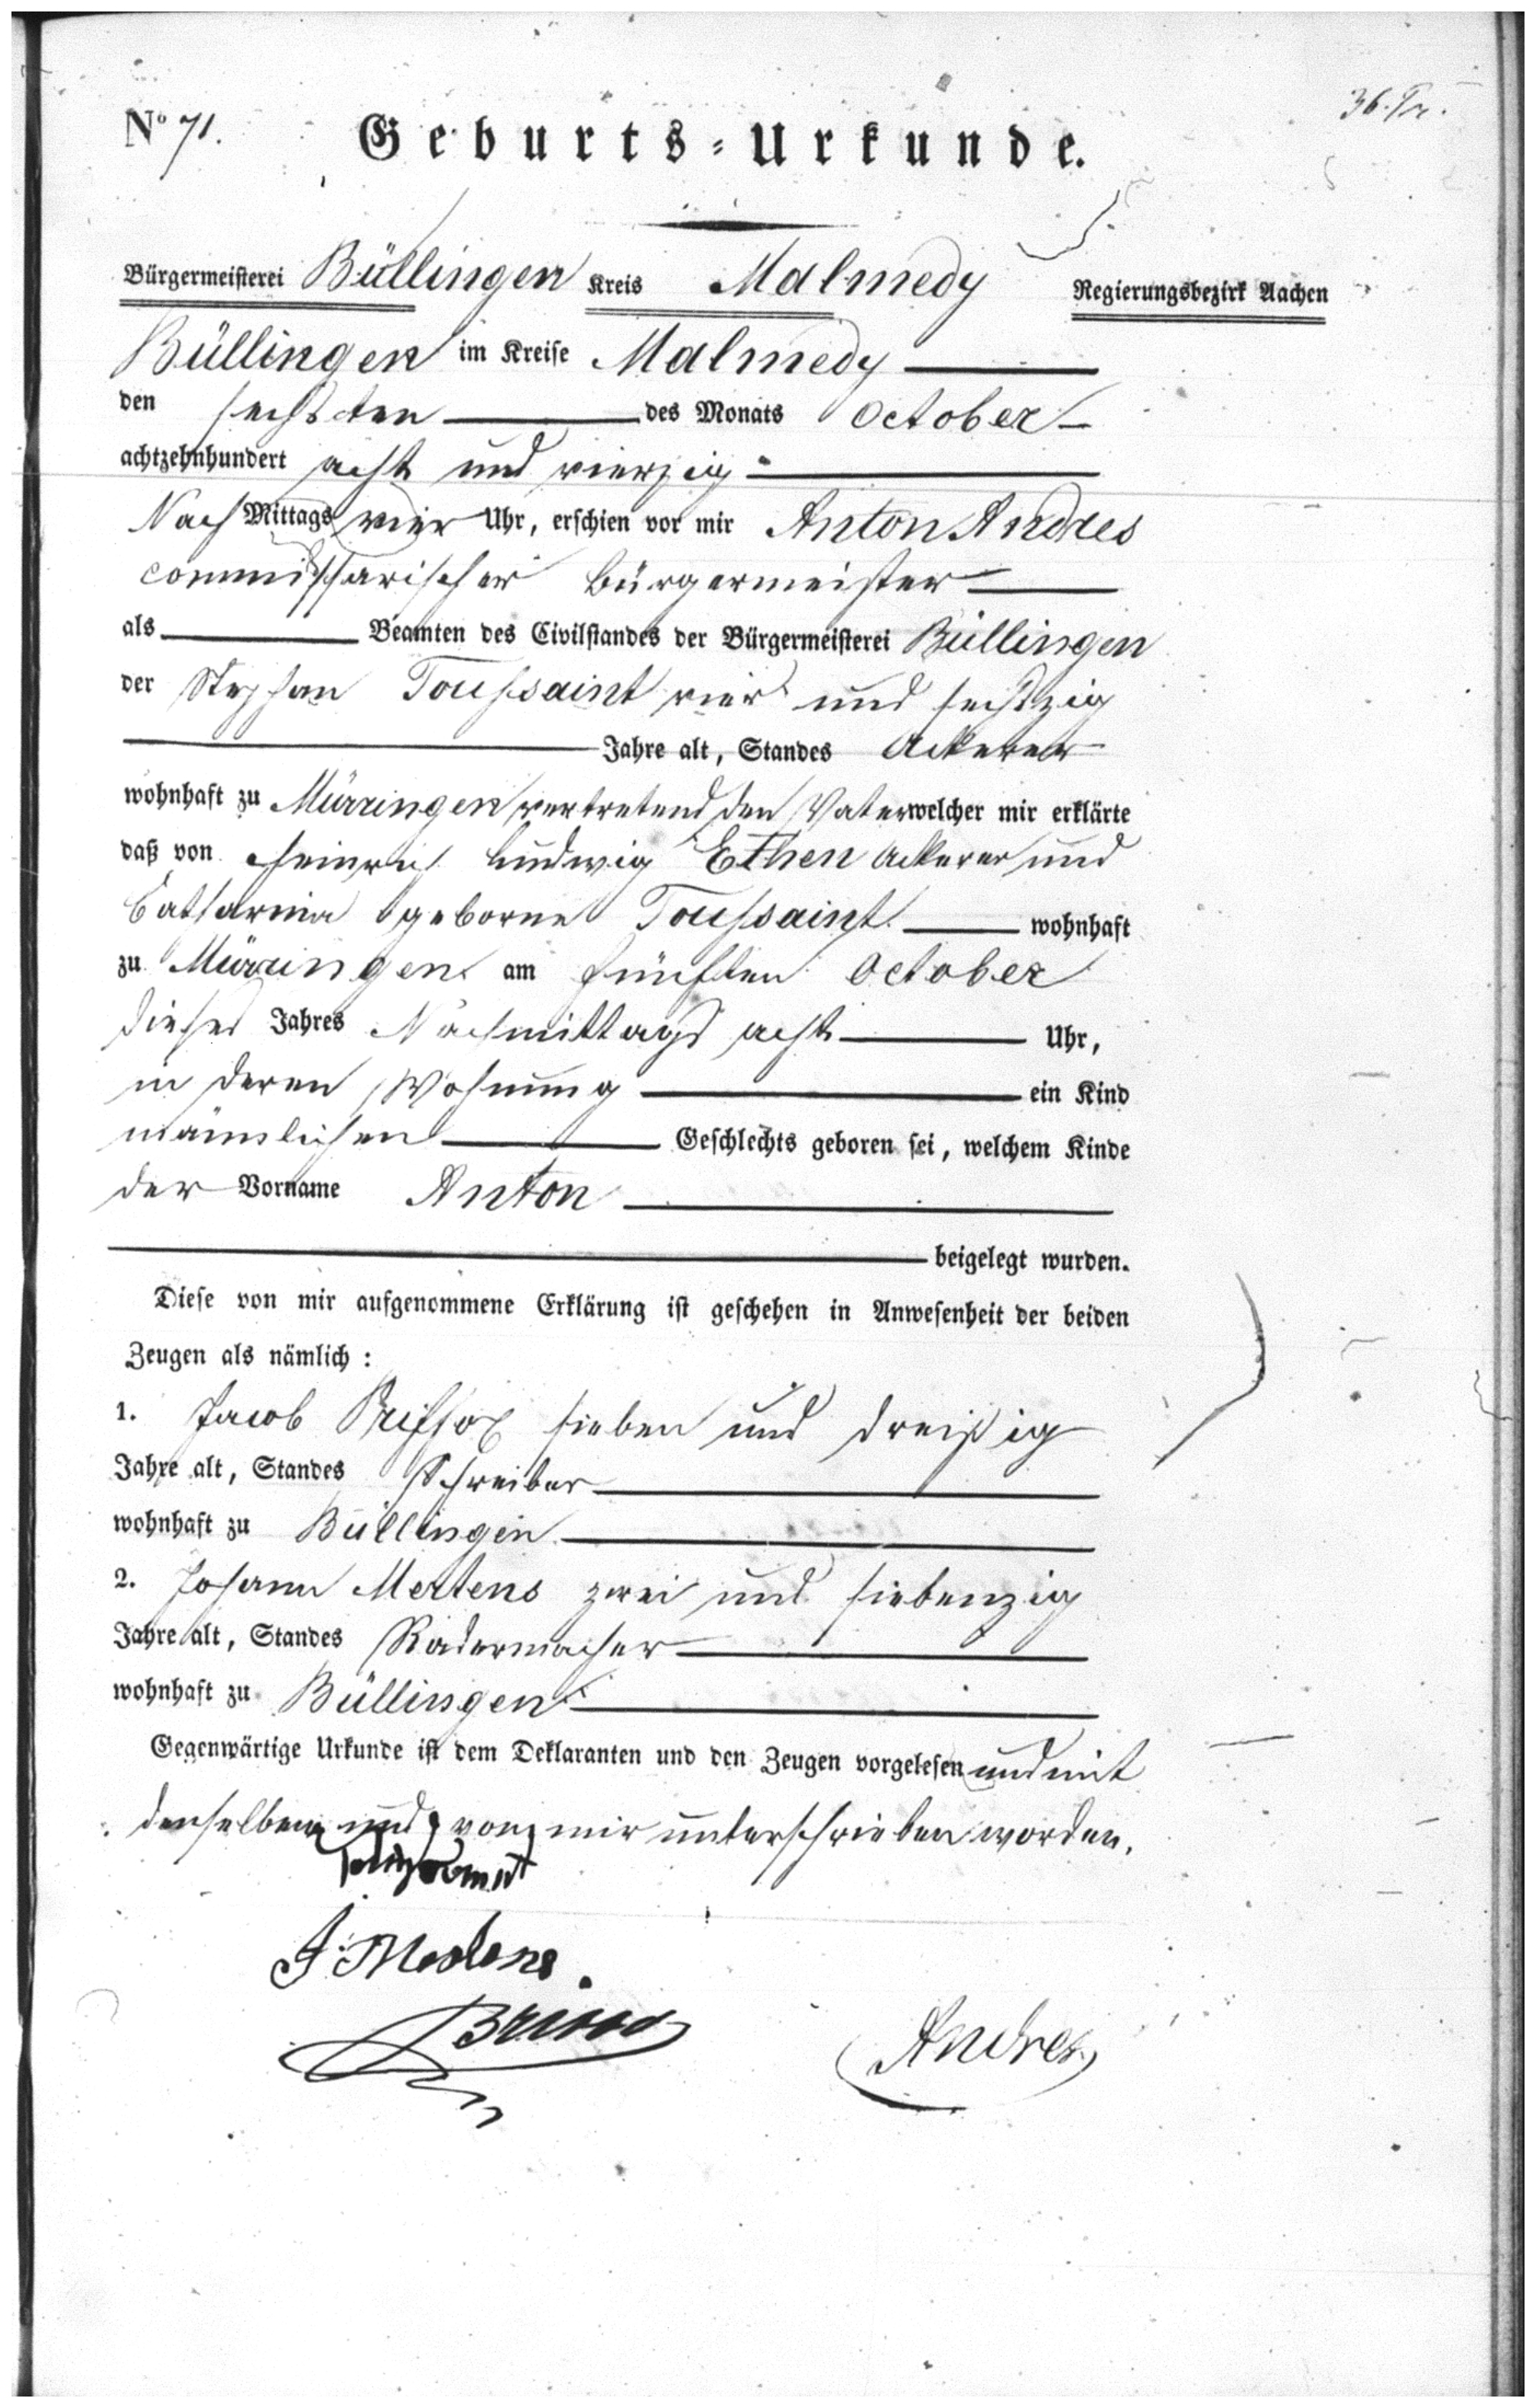 No 71.
Geburts-Urkunde.
Bürgermeisterei Büllingen Kreis Malmedy Regierungsbezirk Aachen
Büllingen im Kreise Malmedy
den sechsten des Monats October
achtzehnhundert acht und vierzig
Nach Mittags vier Uhr, erschien vor mir Anton Andres
commissarischer Bürgermeister
als Beamten des Civilstandes der Bürgermeisterei Büllingen
der Stephan Toussaint vier und sechszig
Jahre alt, Standes Ackerer
wohnhaft zu Mürringen vertretend den Vater welcher mir erklärte
daß von Heinrich Ludwig Ethen Ackerer und
Catharina geborne Toussaint wohnhaft
zu Mürringen am fünften October
dieses Jahres Nachmittags acht Uhr,
in deren Wohnung ein Kind
männlichen Geschlechts geboren sei, welchem Kinde
der Vorname Anton
beigelegt wurden.
Diese von mir aufgenommene Erklärung ist geschehen in Anwesenheit der beiden
Zeugen als nämlich :
1. Jacob sieben und dreißig
Jahre alt, Standes Schreiber
wohnhaft zu Büllingen
2. Johann Mertens zwei und siebenzig
Jahre alt, Standes Radermacher
wohnhaft zu Büllingen
Gegenwärtige Urkunde ist dem Deklaranten und den Zeugen vorgelesen und mit
denselben und von mir unterschrieben worden.
J. Mertens
Andres